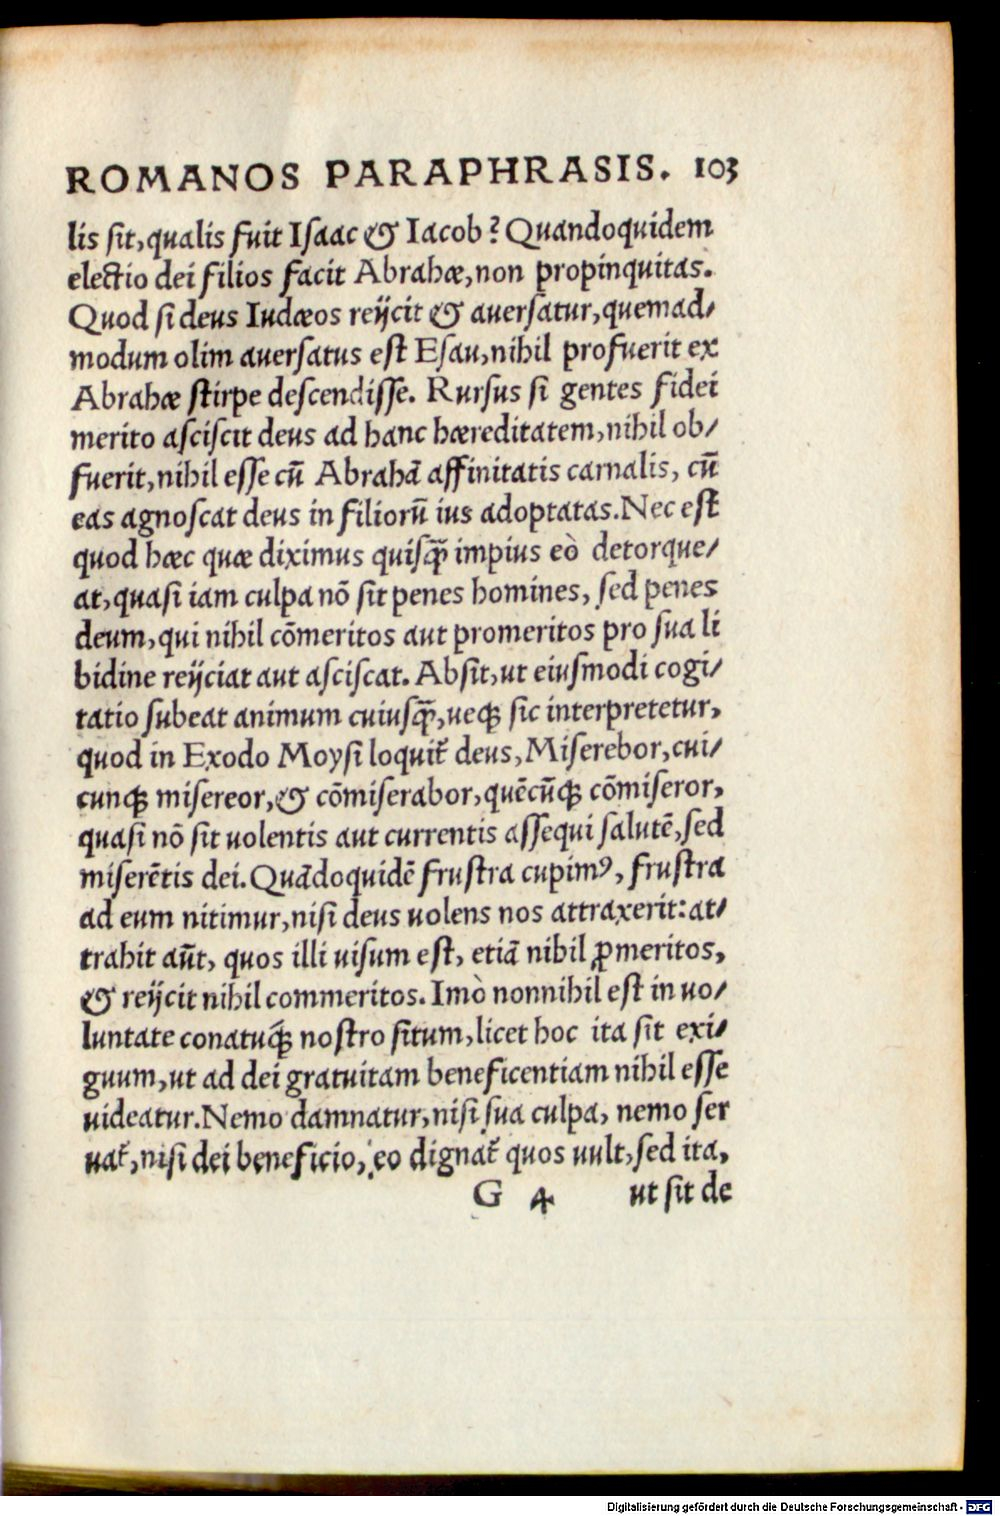 ROMANOS PARAPHRASIS. 103
lis sit, qualis fuit Isaac & Iacob? Quandoquidem
electio dei filios facit Abrahæ, non propinquitas.
Quod si deus Iudæos reijcit & auersatur, quemad/
modum olim auersatus est Esau, nihil profuerit ex
Abrahæ stirpe descendisse. Rursus si gentes fidei
merito asciscit deus ad hanc hæreditatem, nihil ob/
fuerit, nihil esse cū Abrahā affinitatis carnalis, cū
eas agnoscat deus in filiorū ius adoptatas. Nec est
quod hæc quæ diximus quisq̄ impius eò detorque/
at, quasi iam culpa nō sit penes homines, sed penes
deum, qui nihil cōmeritos aut promeritos pro sua li
bidine reijciat aut asciscat. Absit, ut eiusmodi cogi/
tatio subeat animum cuiusq̄, ueqꝫ sic interpretetur,
quod in Exodo Moysi loquit̃ deus, Miserebor, cui/
cunqꝫ misereor, & cōmiserabor, quēcūqꝫ cōmiseror,
quasi nō sit uolentis aut currentis assequi salutē, sed
miserētis dei. Quādoquidē frustra cupimꝰ, frustra
ad eum nitimur, nisi deus uolens nos attraxerit: at/
trahit aūt, quos illi uisum est, etiā nihil ꝓmeritos,
& reijcit nihil commeritos. Imò nonnihil est in uo/
luntate conatuqꝫ nostro situm, licet hoc ita sit exi/
guum, ut ad dei gratuitam beneficentiam nihil esse
uideatur. Nemo damnatur, nisi sua culpa, nemo ser
uat̃, nisi dei beneficio, eo dignat̃ quos uult, sed ita,
G 4 ut sit de
Digitalisierung gefördert durch die Deutsche Forschungsgemeinschaft - DFG